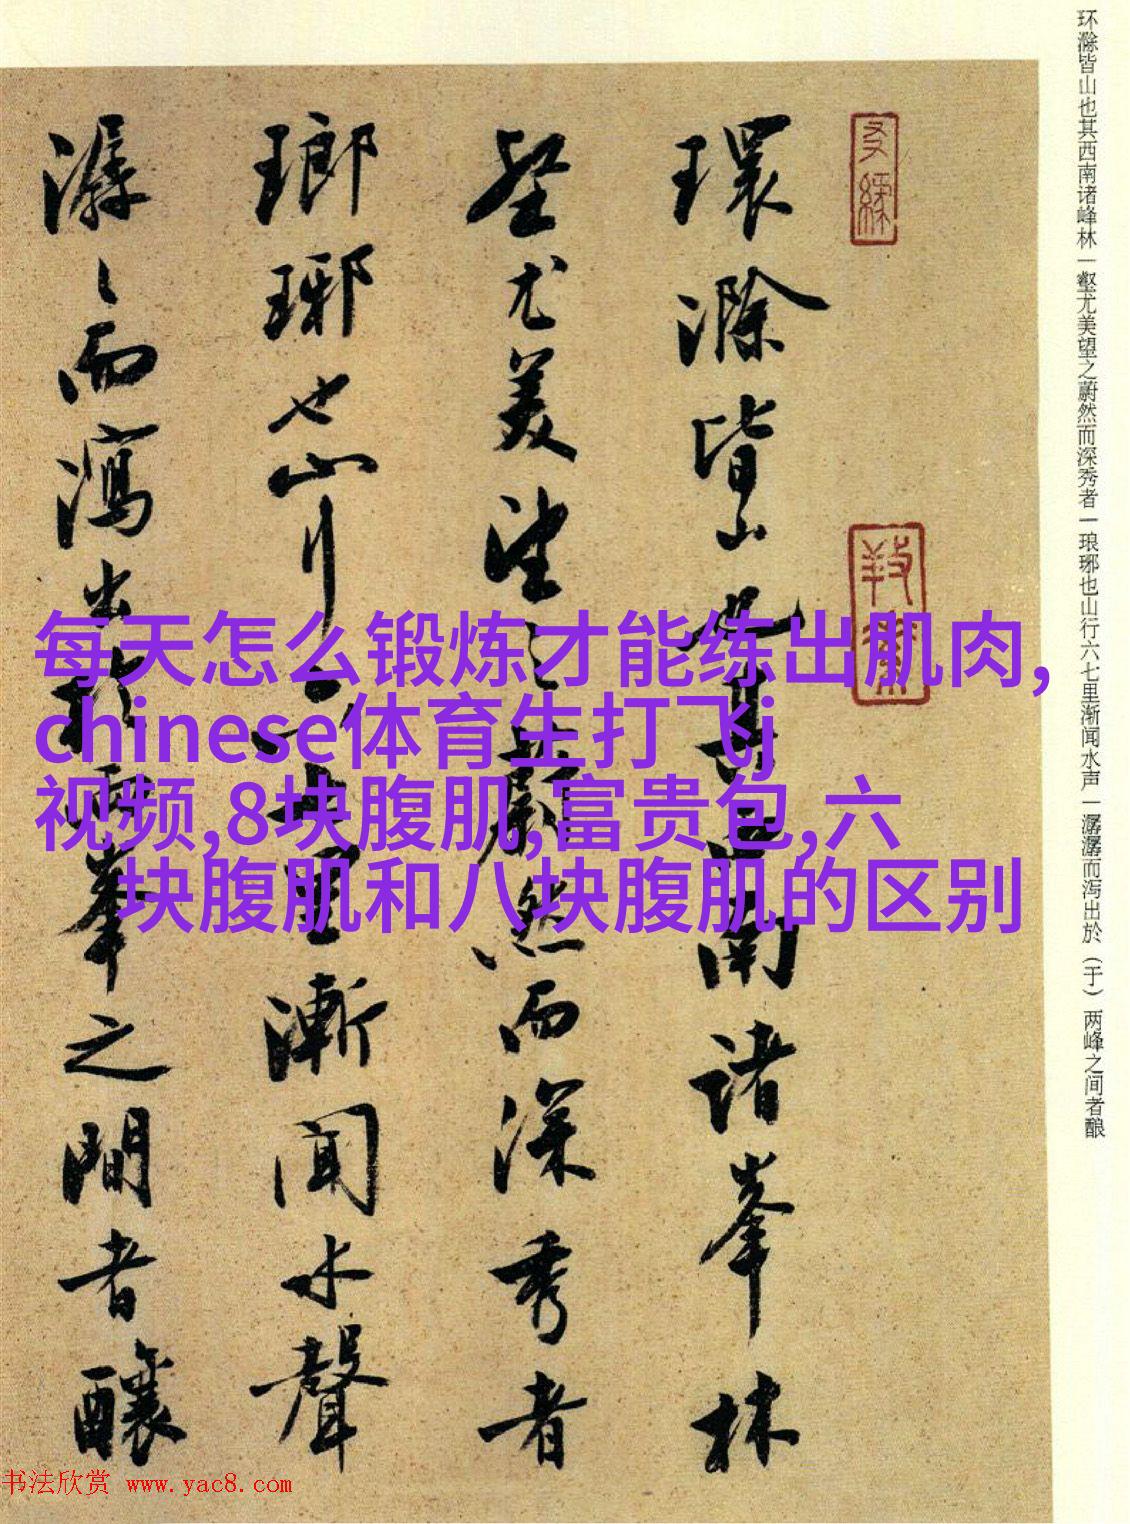 环滁皆山也其西南诸峰林|壑尤美望之蔚然而深秀者|琅琊也山行六七里渐闻水声|潺潺而泻出於（于）两峰之间者酿
環滁皆山也其西南諸峯林
壑尤美望之蔚然而深秀者
瑯琊也山行六七里漸聞水聲
潺〻而瀉出於兩峯之間者釀
每天怎么锻炼才能练出肌肉,
chinese体育生打飞j
视频,8块腹肌,富贵包,六
块腹肌和八块腹肌的区别
书法欣赏 www.yac8.com